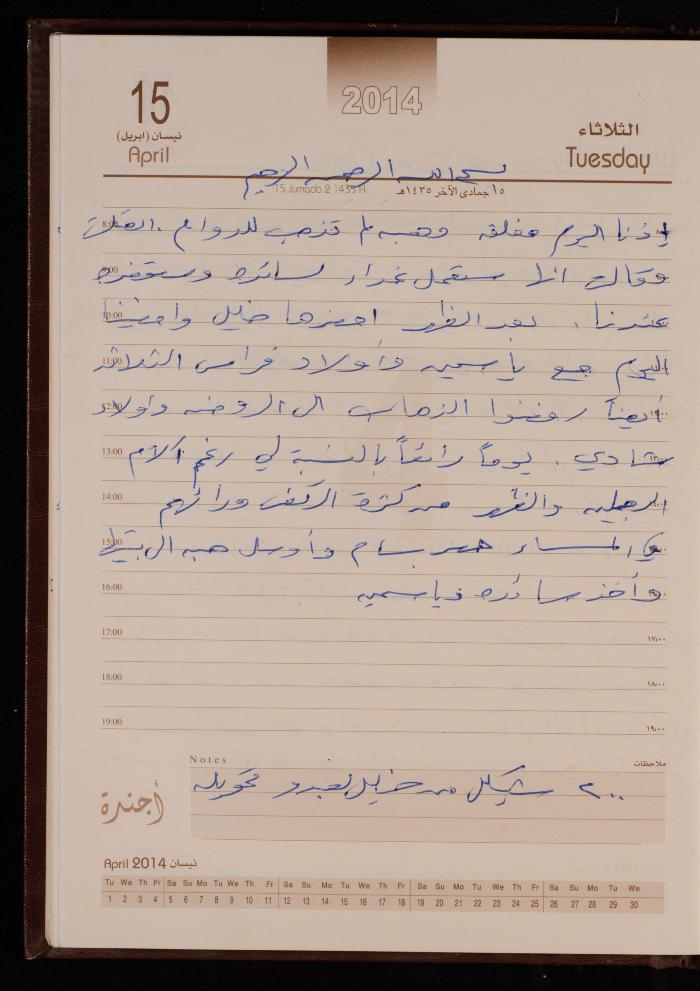 2014
15
نيسان (ابريل)
April
الثلاثاء
Tuesday
بسم الله الرحمن الرحيم
15 Jumada 2 1435 H
١٥ جمادى الآخر ١٤٣٥هـ
8:00 اليوم مغلقه وهبه لم تذهب للدوام
وقالت انها ستعمل غداء لسائده وستحضره
10:00 عندنا . بعد الظهر احضرها خليل وامضينا
11:00 اليوم جميع ياسمين وأولاد فراس الثلاثه
أيضاً رفضوا الذهاب الى الروضه وأولاد
13:00 شادي . يوماً رائعاً بالنسبة لي رغم آلام
14:00 الرجلين والظهر من كثرة الركض ورائهم
15:00 في المساء حضر بسام وأوصل هبه الى بيتها
16:00 وأخذ سائده وياسمين
17:00 ١٧,٠٠
18:00 ١٨,٠٠
19:00 ١٩,٠٠
Notes ملاحظات
٢٠٠ شيكل من خليل
أجندة
April 2014 نيسان
Tu We Th Fr Sa Su Mo Tu We Th Fr Sa Su Mo Tu We Th Fr Sa Su Mo Tu We Th Fr Sa Su Mo Tu We
1 2 3 4 5 6 7 8 9 10 11 12 13 14 15 16 17 18 19 20 21 22 23 24 25 26 27 28 29 30